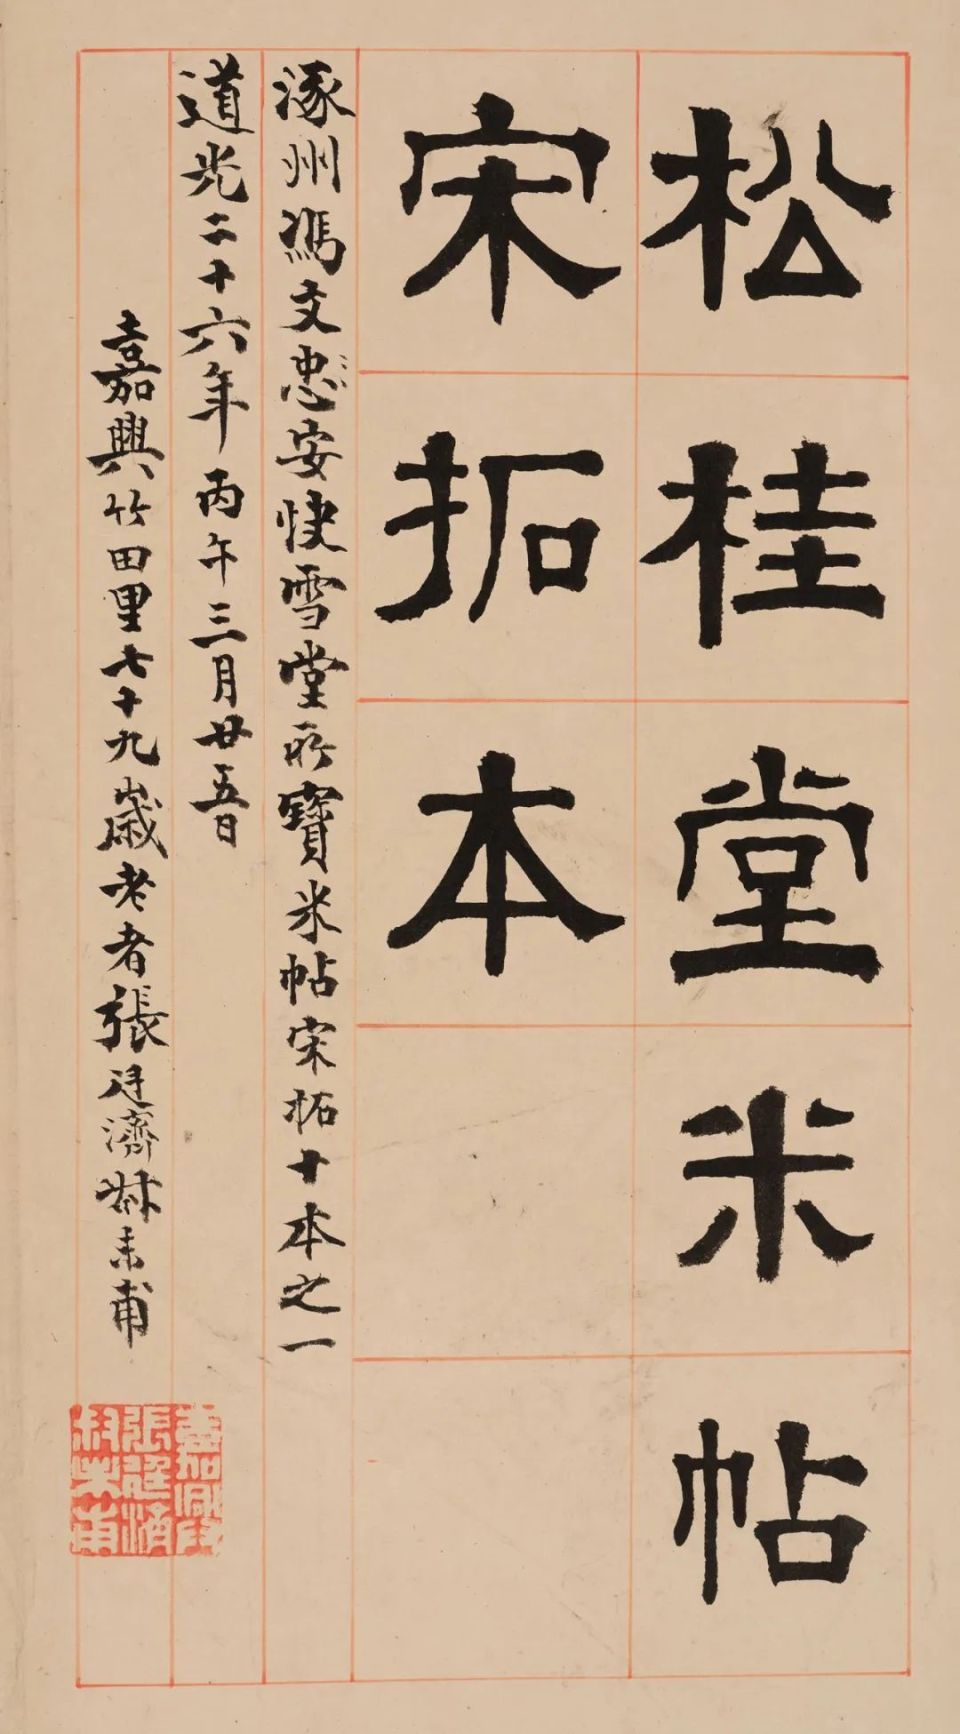 松桂堂米帖
宋拓本
涿州馮文忠安快雪堂所寶米帖宋柘十本之一
道光二十六年丙午三月廿五日
嘉興竹田里七十九歲老者張廷濟叔未甫
嘉興
張廷濟
叔未甫